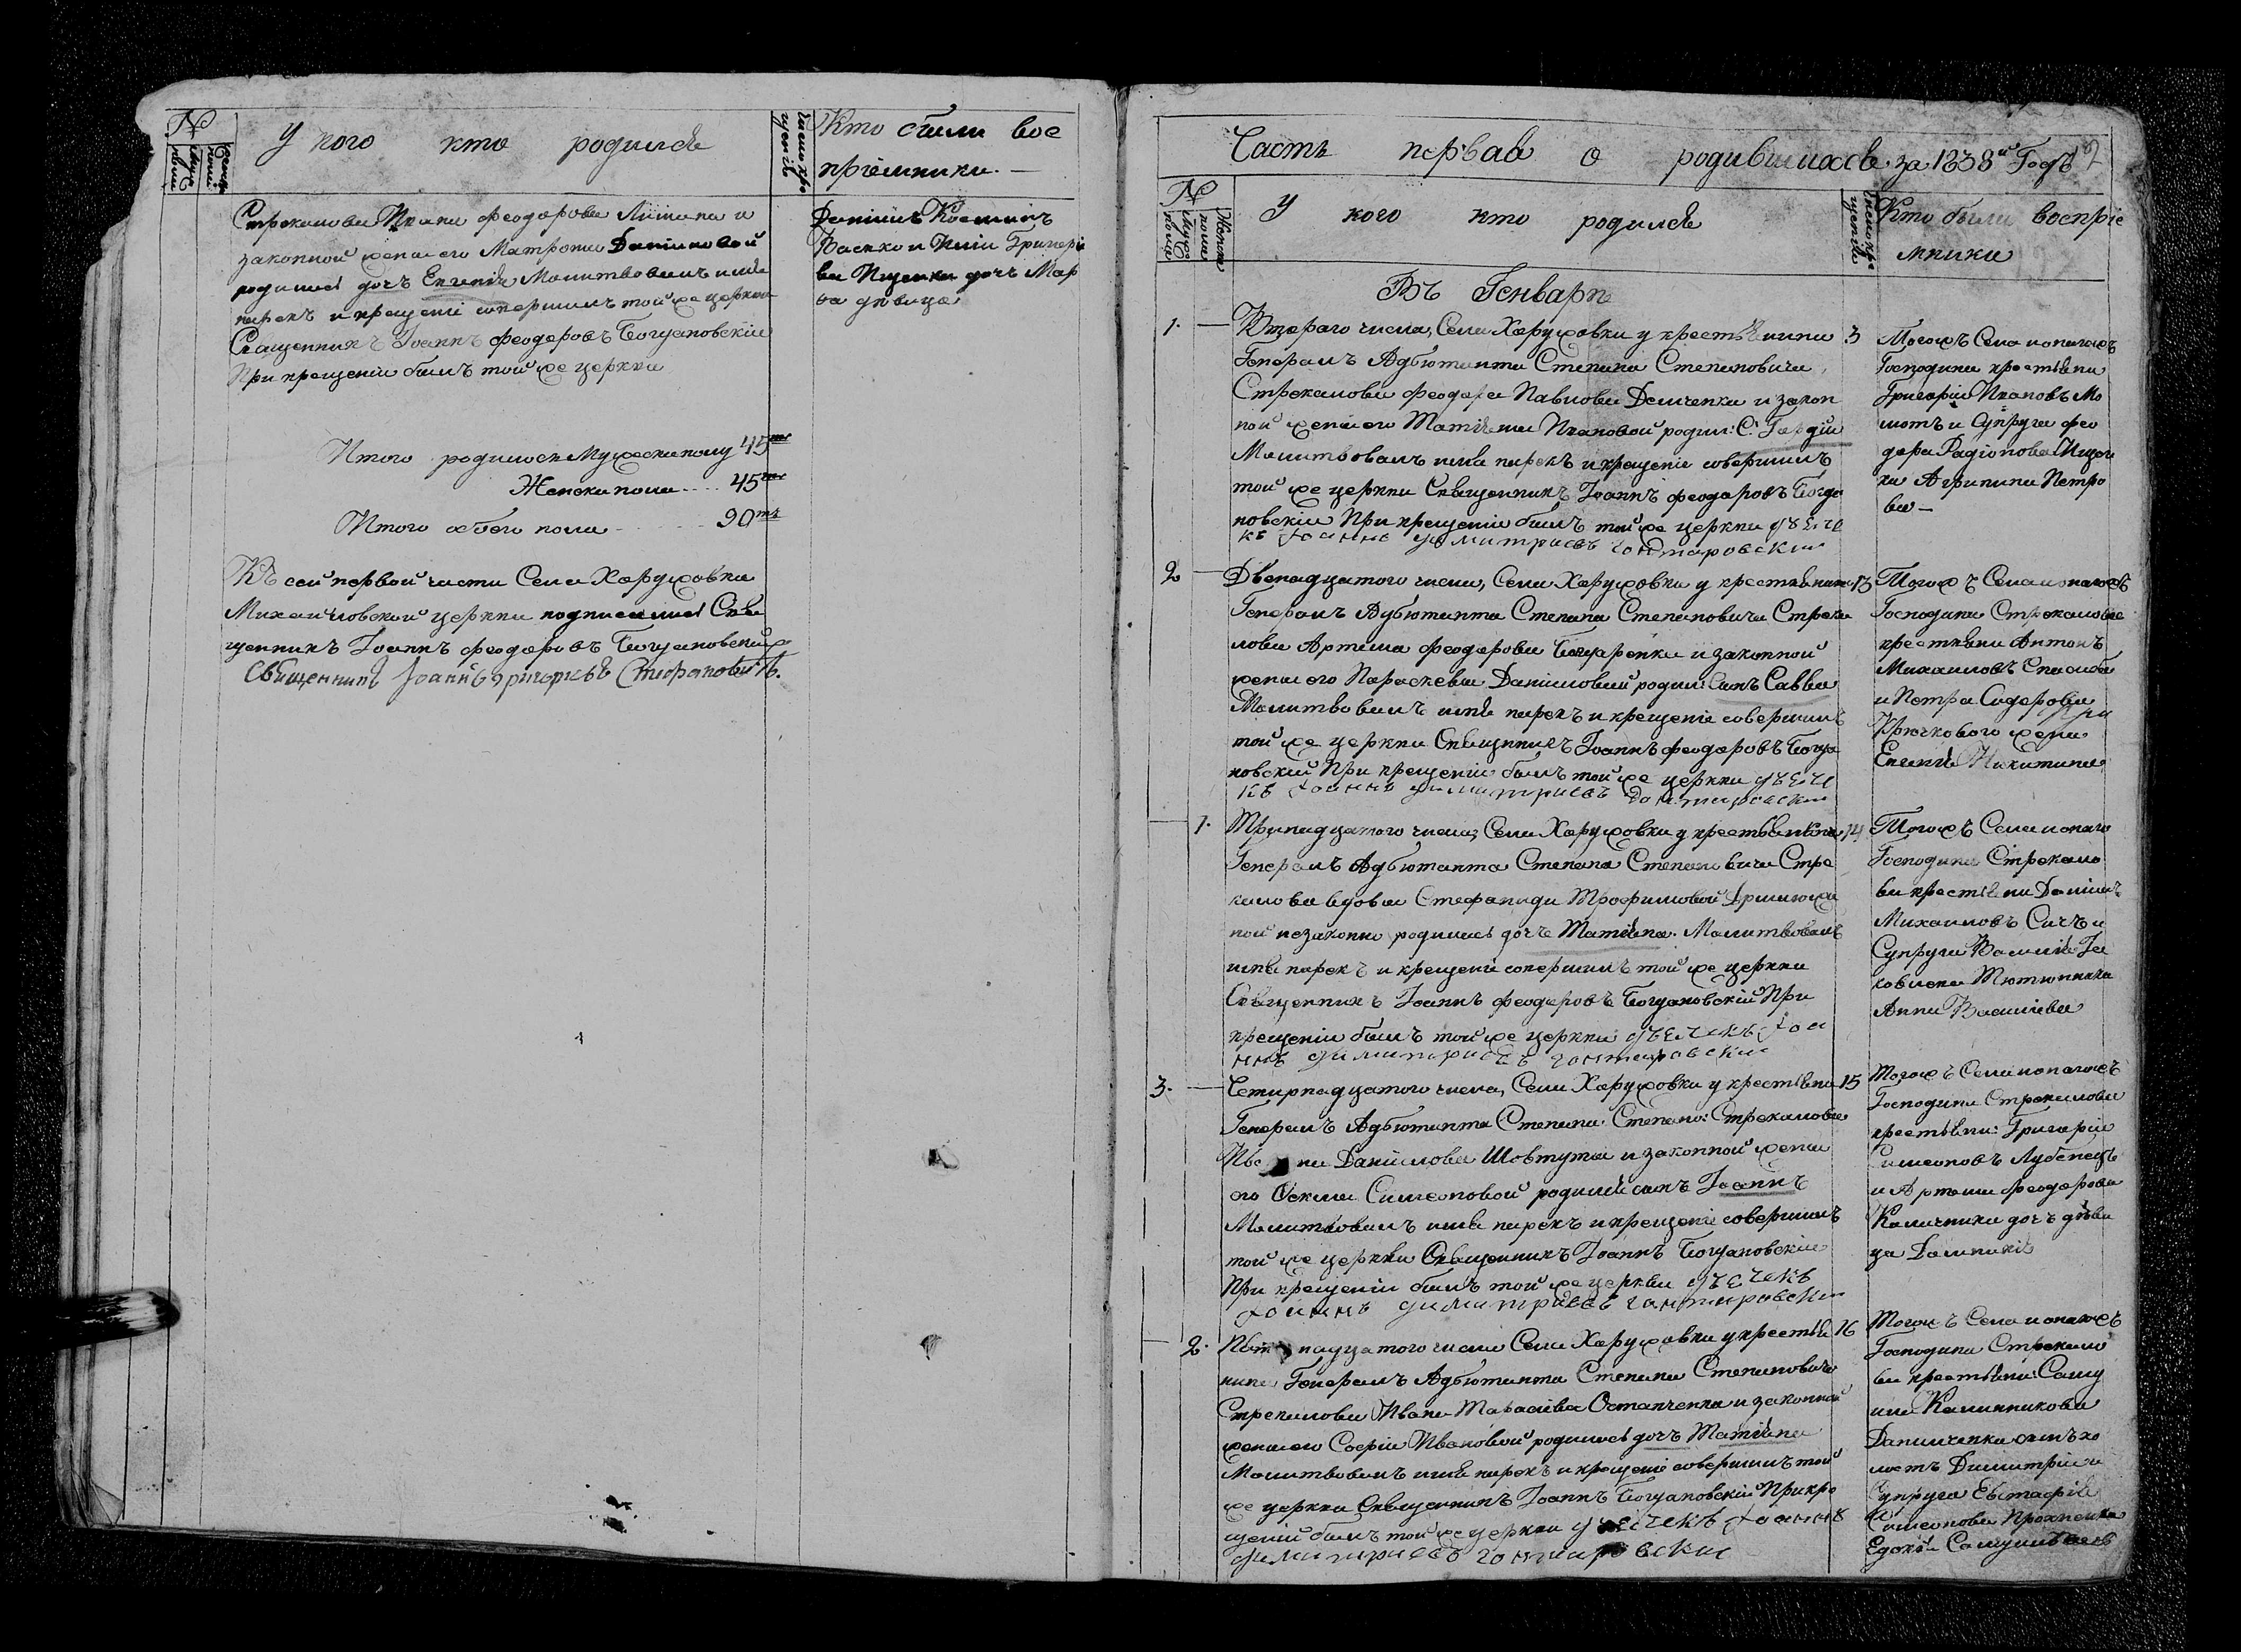 №
У кого кто родился
число кре
щенія
Кто были вос
пріемники. —
Стрекалова Ивана Феодорова Литвина и
законной жены его Матроны Даніиловой
родилась дочь Евгенія Молитвовалъ имя
нарекъ и крещеніе совершилъ той же церкви
Священникъ Іоаннъ Феодоровъ Богдановскій
При крещеніи былъ той же церкви
Даніилъ Косминъ
и Григорі
ва дочь Мар
ѳа дѣвица
Итого родилось Мужеска полу 45
Женска пола .... 45
Итого обоего пола 90
Къ сей первой части Села Харжовки
Михайловской церкви подписались Свя
щенникъ Іоаннъ Феодоровъ Богдановскій
Священникъ Іоаннъ Григорьевъ Стефановичъ.
Часть первая о родившихся за 1838й Годъ
№
У кого кто родился
число кре
щенія
Кто были воспріе
мники
Въ Генварѣ
1. Втораго числа, Села Харжовки у крестьянина 3
Генералъ Адъютанта Степана Степановича
Стрекалова Феодора Павлова Демченка и закон
ной жены его Татіаны Ивановой родил: С: Гордій
Молитвовалъ имя нарекъ и крещеніе совершилъ
той же церкви Священникъ Іоаннъ Феодоровъ Богда
новскій При крещеніи былъ той же церкви дьячо
къ Іоаннъ Димитріевъ Гонтаровскій
Тогожъ Села и оногожъ
Господина крестьяни
Григорій Ивановъ
и Супруга Фео
дора Радіонова
ка Агрипина Петро
ва —
2 Двенадцатого числа, Села Харжовки у крестьянина 13
Генералъ Адъютанта Степана Степановича Стрека
лова Артема Феодорова Бондаренка и законной
жены его Параскевы Даніиловой родил: Сынъ Савва
Молитвовалъ имя нарекъ и крещеніе совершилъ
той же церкви Священникъ Іоаннъ Феодоровъ Богда
новскій При крещеніи былъ той же церкви дьячо
къ Іоаннъ Димитріевъ Гонтаровскій
Тогожъ Села и оногожъ
Господина Стрекалова
крестьяни Антонъ
Михаиловъ
и Петра Сидорова
Крючкового жена
Евгенія Никитина
1. Тринадцатого числа, Села Харжовки у крестьянина 14
Генералъ Адъютанта Степана Степановича Стре
калова вдовы Стефаниды Трофимовой
ной незаконно родилась дочь Татіяна. Молитвовалъ
имя нарекъ и крещеніе совершилъ той же церкви
Священникъ Іоаннъ Феодоровъ Богдановскій При
крещеніи былъ той же церкви дьячекъ Іоа
ннъ Димитріевъ Гонтаровскій
Тогожъ Села и оного
Господина Стрекало
ва крестьяни Даніилъ
Михаиловъ Сичъ и
Супруга Василія Іа
ковлева Тютюнника
Анна Василіева
3. Четирнадцатого числа, Села Харжовки у крестьяни 15
Генералъ Адъютанта Степана Степано: Стрекалова
Ивана Даніилова Шовтута и законной жены
его Симеоновой родился сынъ Іоаннъ
Молитвовалъ имя нарекъ и крещеніе совершилъ
той же церкви Священникъ Іоаннъ Богдановскій
При крещеніи былъ той же церкви дьячекъ
Іоаннъ Димитріевъ Гонтаровскій
Тогожъ Села и оногожъ
Господина Стрекалова
крестьяни: Григорій
Симеоновъ Лубенецъ
и Артема Феодорова
Калічника дочь дѣви
ца Домникія
2. Пятнадцатого числа Села Харжовки у крестья 16
нина Генералъ Адъютанта Степана Степановича
Стрекалова Ивана Тарасіева Остапченка и законной
жены его Софіи Ивановой родилась дочь Татіяна
Молитвовалъ имя нарекъ и крещеніе совершилъ той
же церкви Священникъ Іоаннъ Богдановскій При кре
щеніи былъ той же церкви дьячекъ Іоаннъ
Димитріевъ Гонтаровскій
Тогожъ Села и оногожъ
Господина Стрекало
ва крестьяни: Саму
ила Калинникова
Данилченка сынъ хо
лостъ Димитрій и
Супруга Евстафія
Симеонова